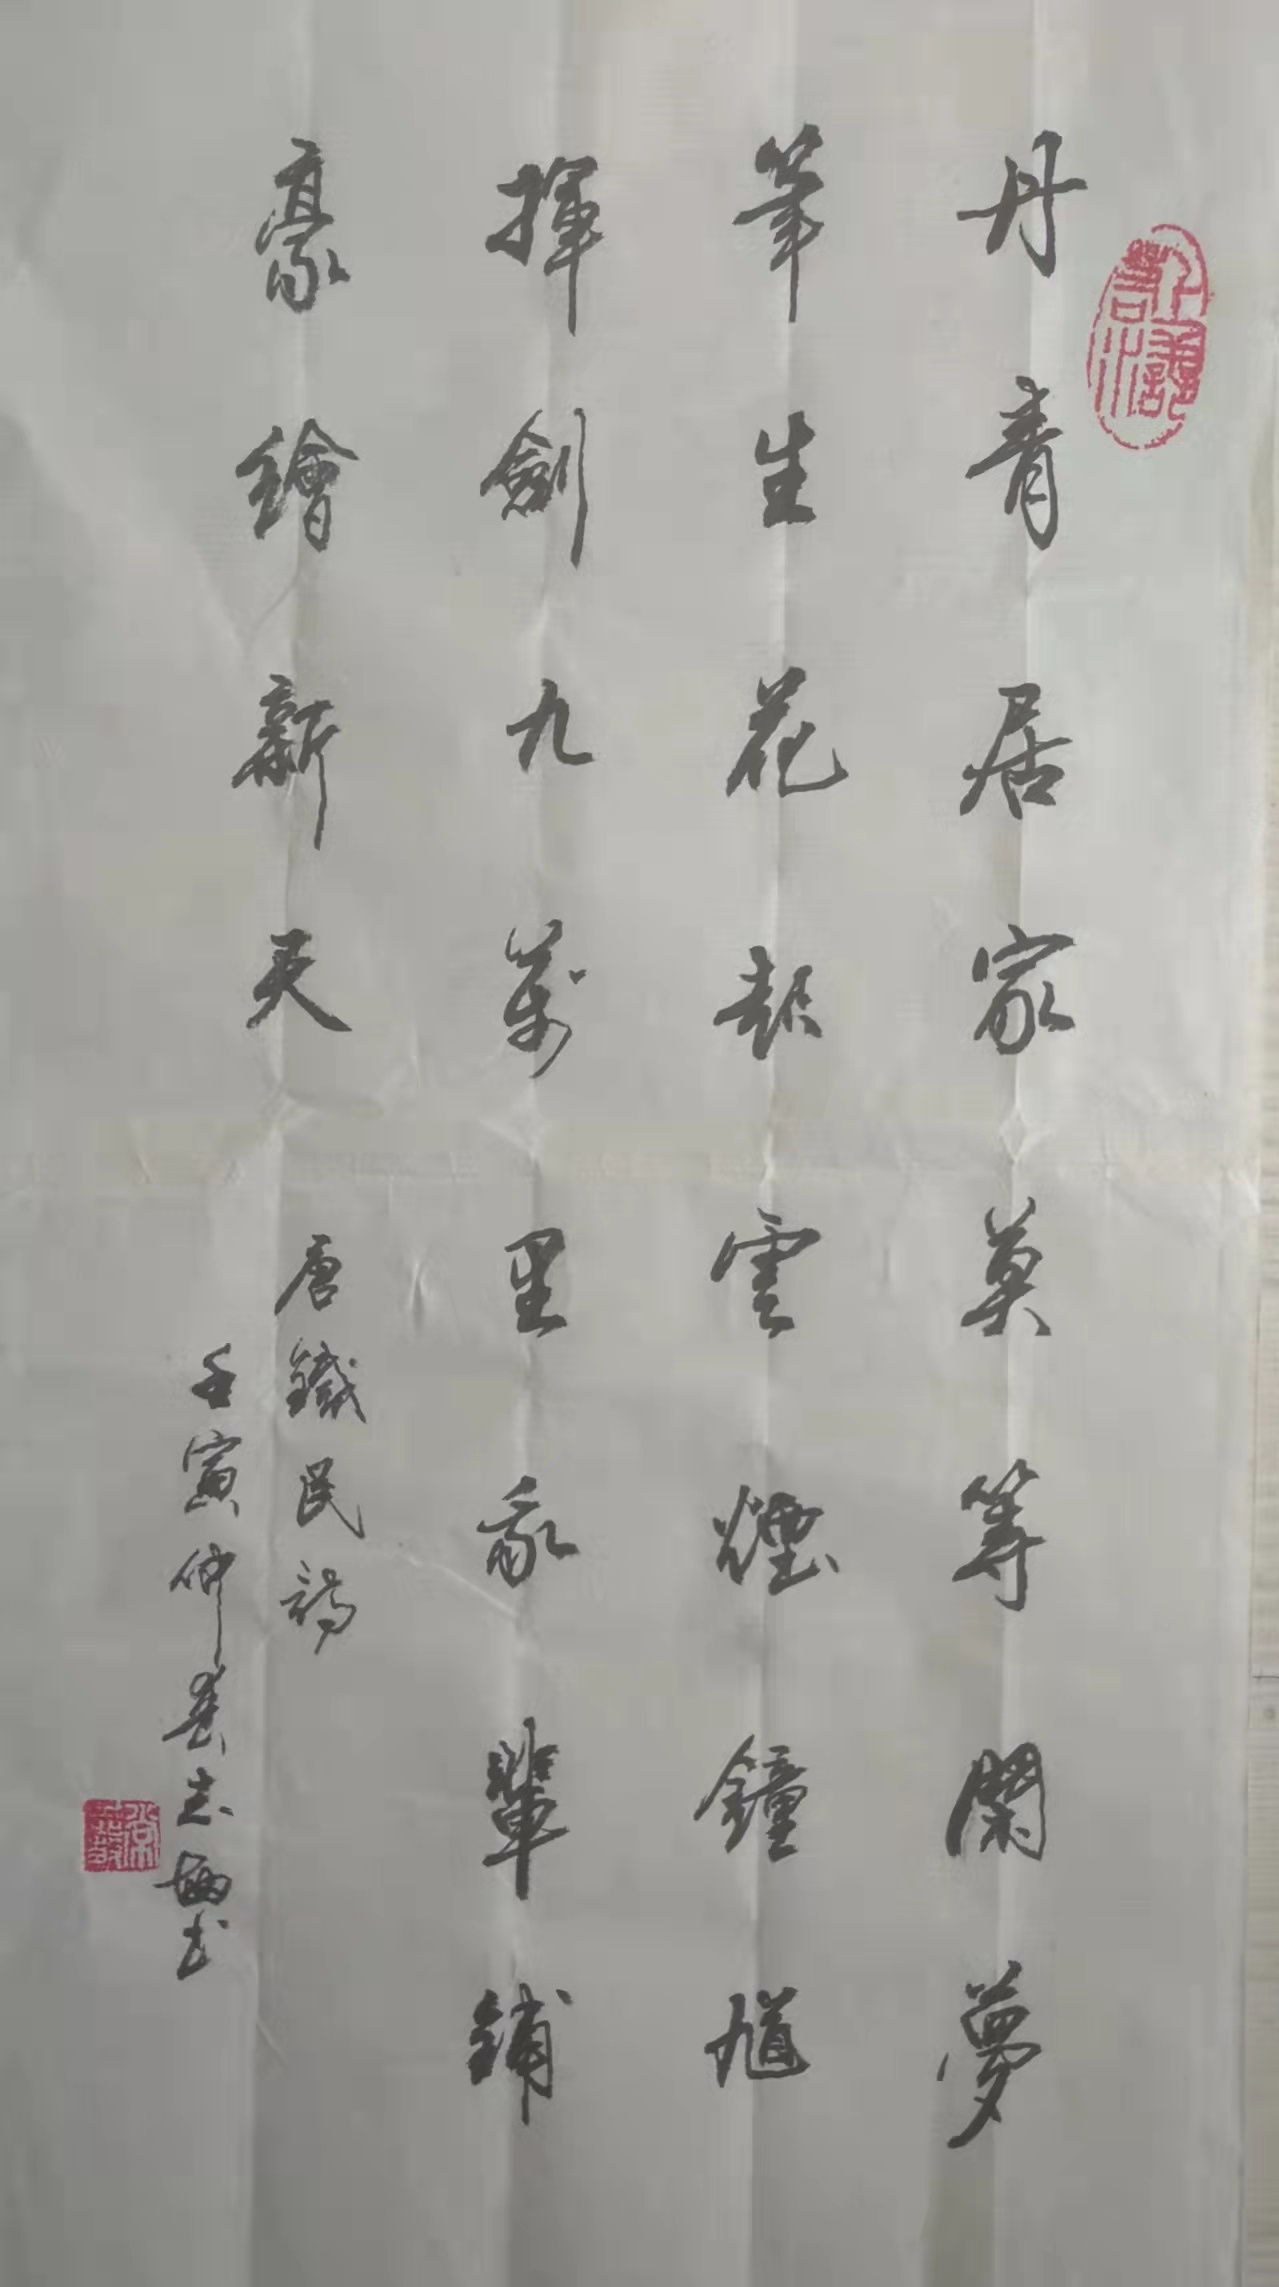 丹青居家莫等閑夢
筆生花起雲煙鐘馗
揮劍九萬里我輩鋪
豪繪新天
唐鐵民詩
壬寅仲春志書